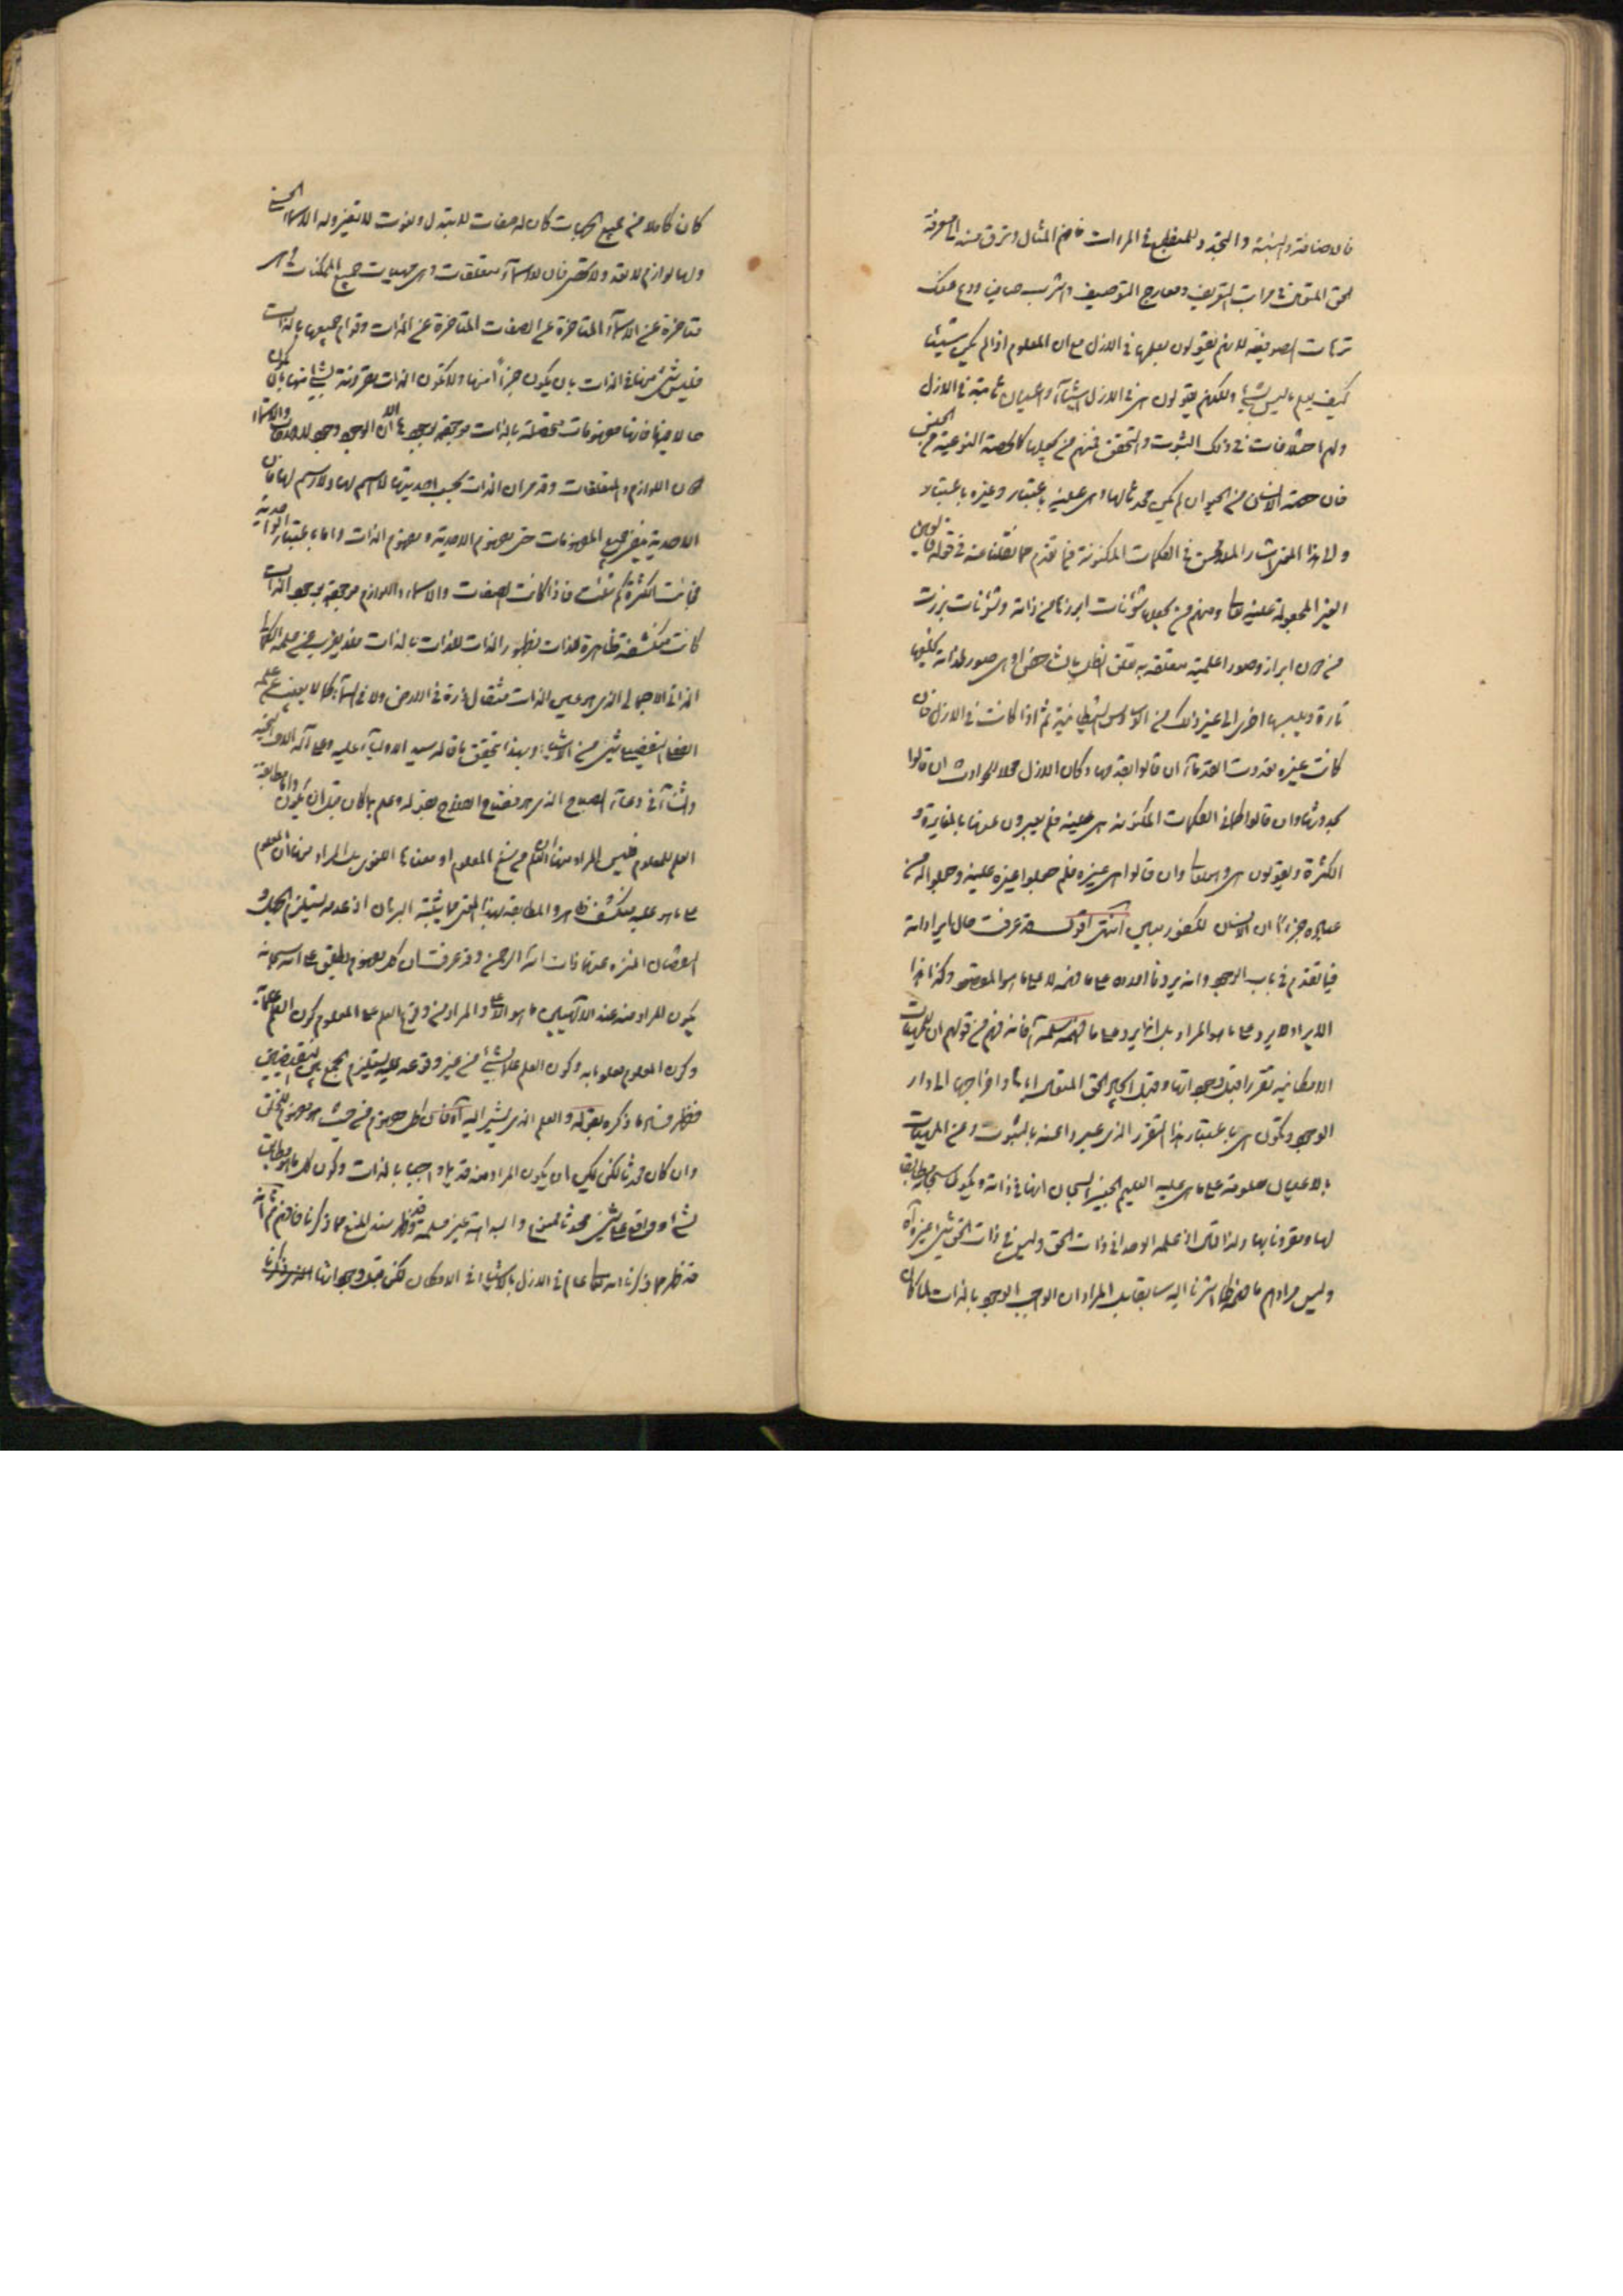 فالاضافة والنسبة والتجدد للمنطبع في المرءات فافهم المثال وترق منه الى معرفة
الحق المتعال في مراتب التعريف ومعارج التوصيف واشرب صافيا ودع عنك
ترهات الصوفية لانهم يقولون بعلمها في الازل مع ان المعلوم اذا لم يكن شيئا
كيف يعلم ما ليس بشيء ولكنهم يقولون هي في الازل اشياء واعيان ثابتة في الازل
ولهم اختلافات في ذلك الثبوت والتحقق فمنهم من يجعلها كالحصة النوعية من الجنس
فان حصة الانسان من الحيوان لم يكن محدثا لها وهي عينه باعتبار وغيره باعتبار
ولهذا المعنى اشار الملا محسن في الكلمات المكنونة فيما تقدم مما نقلنا عنه في قوله
الغير المجعولة عينه تعالى ومنهم من يجعلها شؤنات ابرزها من ذاته وشؤنات برزت
من دون ابراز وصورا علمية متعلقة به تعلق الظل بالشاخص او هي صور لذاته يخلعها
تارة ويلبسها اخرى الى غير ذلك من الوساوس الشيطانية ثم اذا كانت في الازل فان
كانت غيره تعددت القدماء ان قالوا بقدمها وكان الازل محلا للحوادث ان قالوا
بحدوثها وان قالوا كما في الكلمات المكنونة هي عينه فلم يعبرون عنها بالمغايرة و
الكثرة ويقولون هي وهو تعالى وان قالوا هي غيره فلم جعلوا غيره عينه وجعلوا له من
عباده جزءا ان الانسان لكفور مبين انتهى اقول قد عرفت حال ايراداته
فيما تقدم في باب الوجود وانه يرد فالاولاه على ما فهمه لا على ما هو المقصود وكذا هذا
الايراد لا يرد على ما هو المراد بل انما يرد على ما فهمه سلمه الله فانه فهم من قولهم ان للمهيات
الامكانية تقررا قبل وجوداتها وقبل ايجاد الحق المتعال اياها واخراجها الى دار
الوجود وتكون هي باعتبار هذا التقرر الذي عبروا عنه بالثبوت وعن المهيات
بالاعيان معلومة على ما هي عليه العليم الخبير السبحان انها في ذاته ويكون سبحانه مطابقا
لها ومقرونا بها ولذا قال ان علمه الوحداني ذات الحق وليس في ذات الحق شيء غيره اه
وليس مرادهم ما فهمه كما اشرنا اليه سابقا بل المراد ان الواجب الوجود بالذات لما كان
كان كاملا من جميع الجهات كان له صفات لا تتبدل ونعوت لا تتغير وله الاسماء الحسنى
ولها لوازم لا تعد ولا تحصى فان للاسماء متعلقات وهي مهيات جميع الممكنات فهي
متاخرة عن الاسماء المتاخرة عن الصفات المتاخرة عن الذات وقوام جميعها بالذات
فليس شيء منها في الذات بان يكون جزءا منها ولا تكون الذات مقرونة بشيء منها بان يكون
حالا فيها فانها مفهومات متحصلة بالذات موجودة بوجودها اذ الوجود وجود للذات والاسماء
دون اللوازم والمتعلقات وقد مر ان الذات بحسب احديتها لا اسم لها ولا رسم لها فان
الاحدية ينفي جميع المفهومات حتى مفهوم الاحدية ومفهوم الذات واما باعتبار الواحدية
فجائت الكثرة كم شئت فاذا كانت الصفات والاسماء واللوازم موجودة بوجود الذات
كانت منكشفة ظاهرة للذات بظهور الذات للذات بالذات فلا يعزب عن علمه الكمالي
الذاتي الاجمالي الذي هو عين الذات مثقال ذرة في الارض ولا في السماء كما لا يعزب عن علمه
الفعلي التفصيلي شيء من الاشياء وبهذا يتحقق ما قاله سيد الاولياء عليه وعلى آله الاف التحية
والثناء في دعاء الصباح الذي هو مفتاح الفلاح بقوله وعلم بما كان قبل ان يكون واما مطابقة
العلم للمعلوم فليس المراد منها ان العلم من سنخ المعلوم او معناها اللغوي بل المراد منها ان المعلوم
على ما هو عليه منكشف ظاهر والمطابقة بهذا المعنى مما يثبته البرهان اذ عدمه يستلزم الجهل و
النقصان المنزه عنها ذات الله الرحمن وقد عرفت ان كل مفهوم يطلق على الله سبحانه
يكون المراد منه عند الالهيين ما هو الاعلى والمراد من وقوع العلم على المعلوم كون العلم علما به
وكون المعلوم معلوما به وكون العلم علما بشيء من غير وقوعه عليه يستلزم الجمع بين النقيضين
فظهر فساد ما ذكره بقوله والعلم الذي يشير اليه اه فان كل مفهوم من حيث هو مفهوم للخلق
وان كان محدثا لكن يمكن ان يكون المراد منه قديما واجبا بالذات وكون كل ما هو مطابق
لشيء او واقع على شيء محدثا ممنوع والبداهة غير مسلمة وقد ظهر سند المنع مما ذكرنا فافهم ثم انه
قد ظهر مما ذكرنا انه تعالى عالم في الازل بالاشياء في الامكان لكن قبل وجوداتها